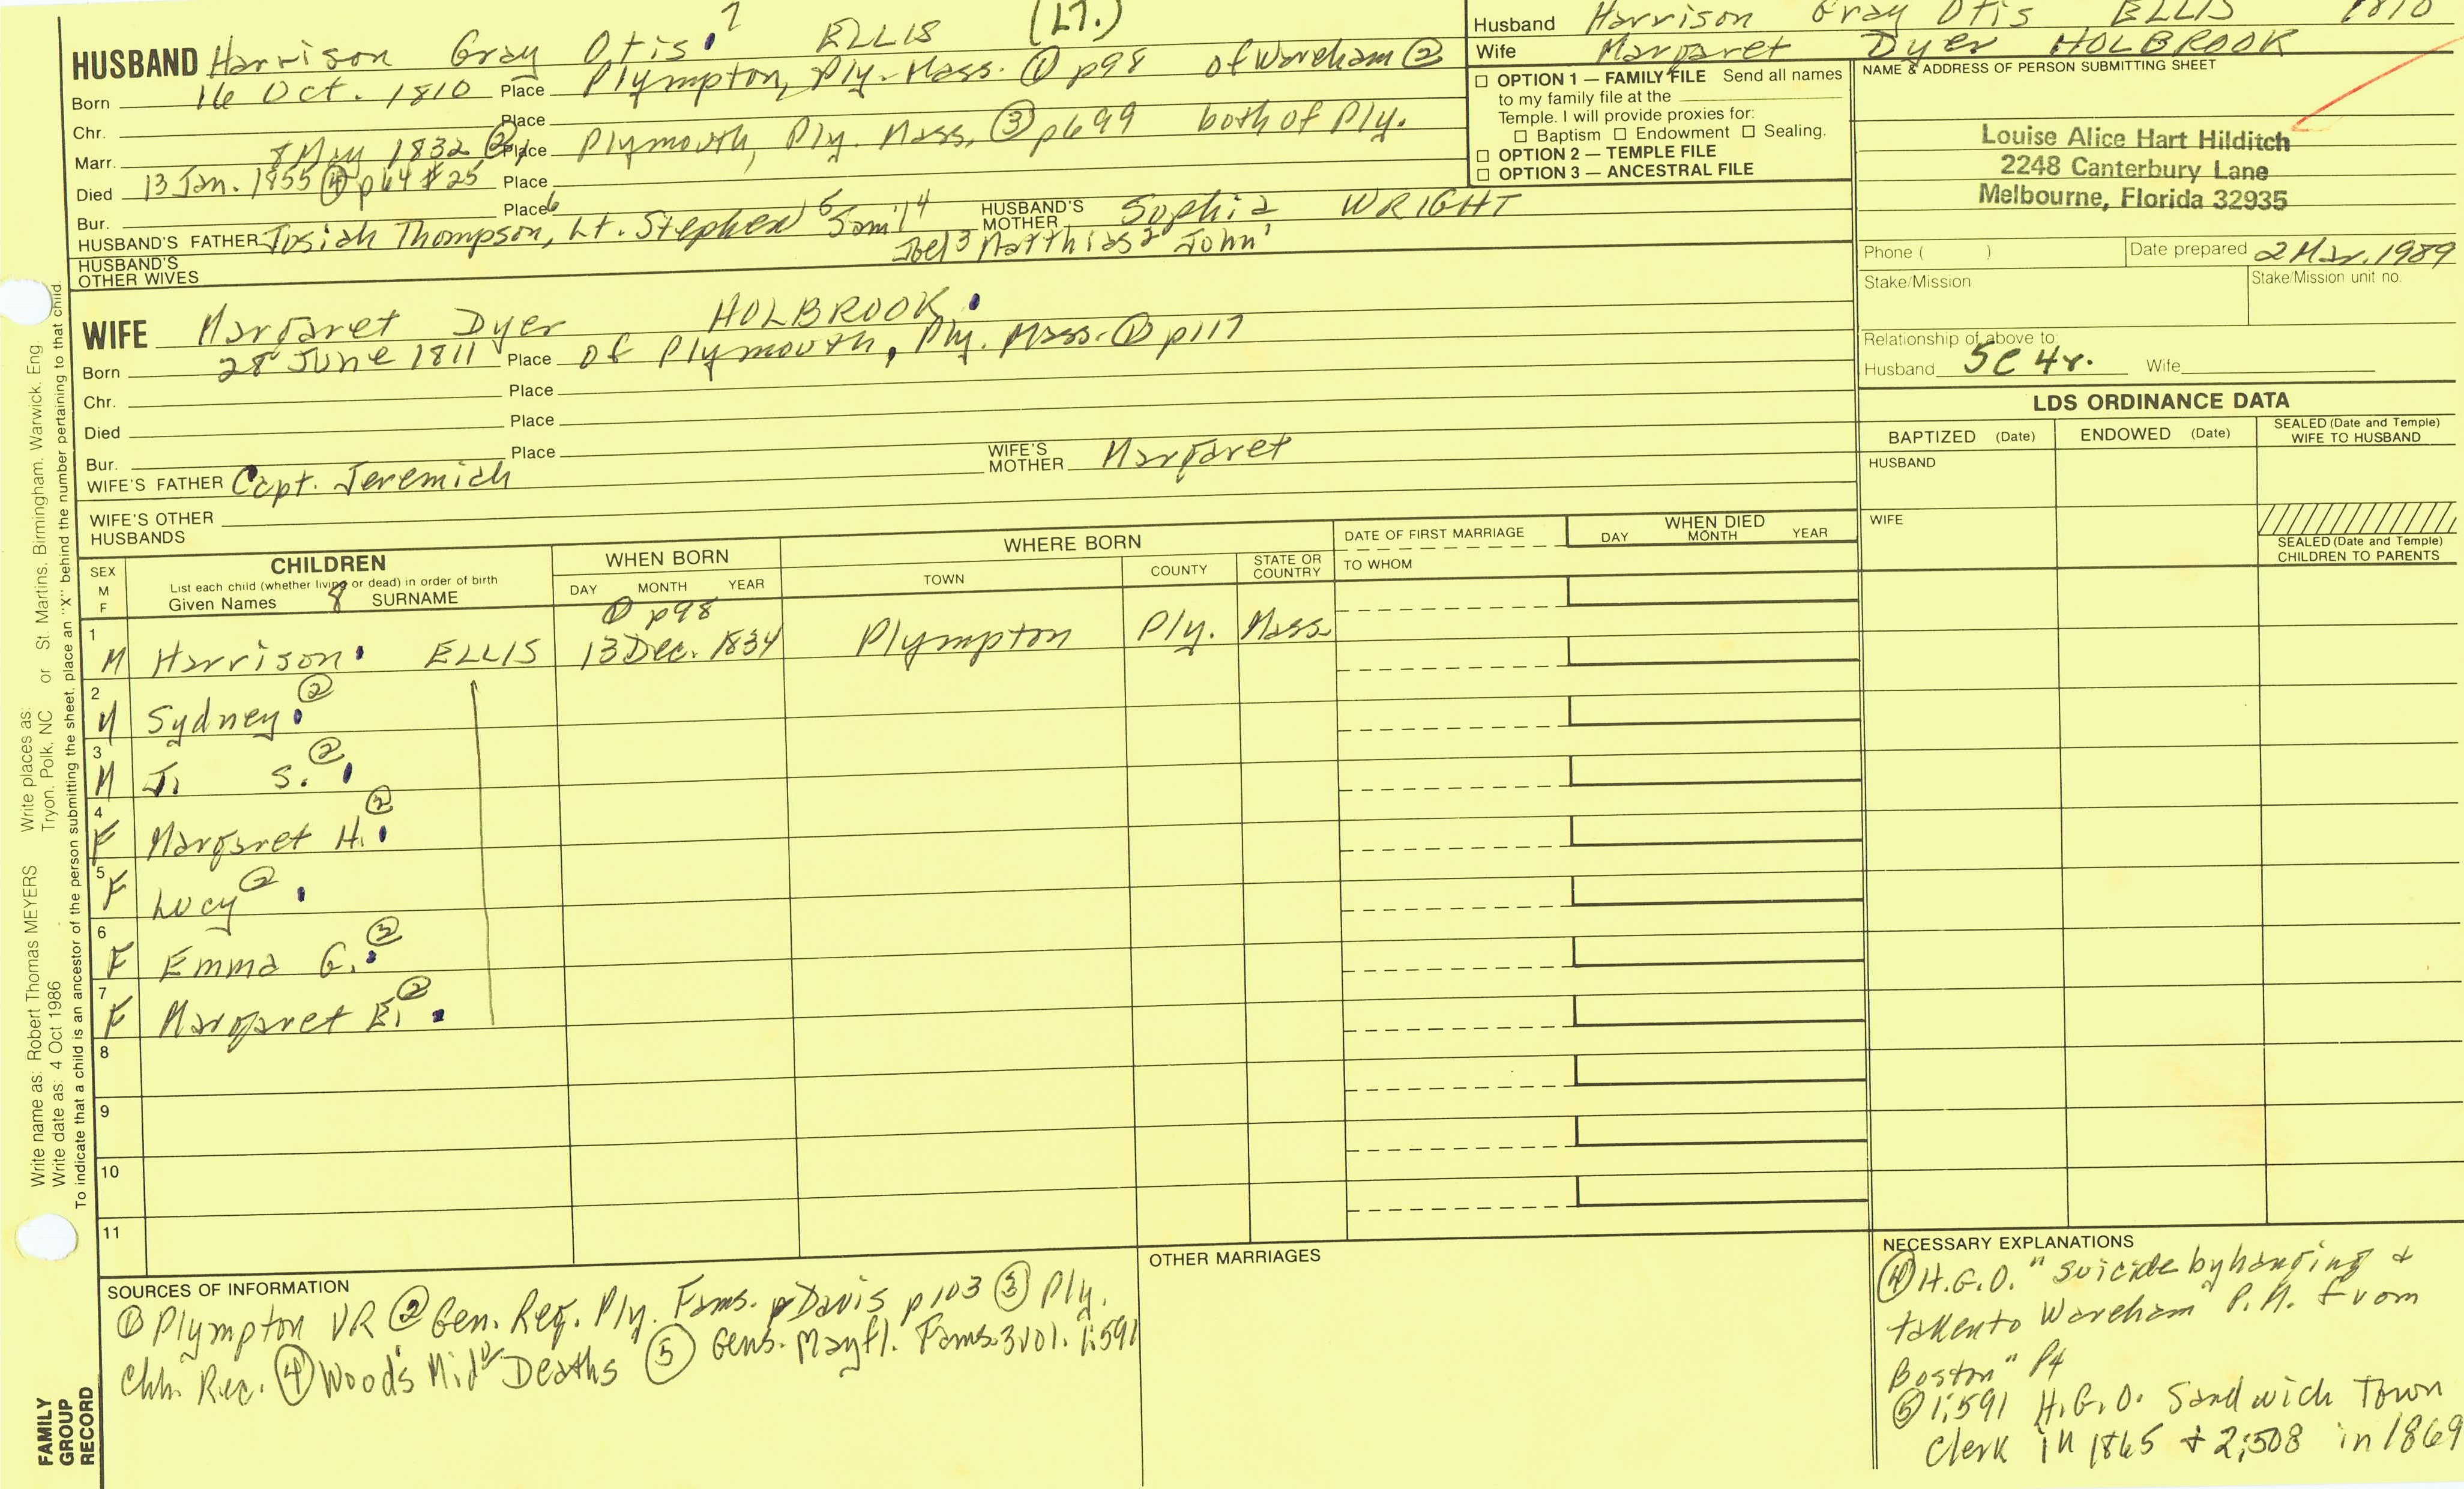 HUSBAND Harrison Gray Otis 7 ELLIS (LT.)
Born 16 Oct. 1810 Place Plympton, Ply. Mass. ① p98 of Wareham ②
Chr. Place
Marr. 8 May 1832 ② Place Plymouth, Ply. Mass. ③ p699 both of Ply.
Died 13 Jan. 1855 ④ p64 #25 Place
Bur. Place
HUSBAND'S FATHER Josiah Thompson, 6 Lt. Stephen 5 Sam'l 4 Joel 3 Matthias 2 John 1
HUSBAND'S MOTHER Sophia WRIGHT
HUSBAND'S OTHER WIVES
WIFE Margaret Dyer HOLBROOK
Born 28 June 1811 Place of Plymouth, Ply. Mass. ① p117
Chr. Place
Died Place
Bur. Place
WIFE'S FATHER Capt. Jeremiah
WIFE'S MOTHER Margaret
WIFE'S OTHER HUSBANDS
Husband Harrison Gray Otis ELLIS 1810
Wife Margaret Dyer HOLBROOK
☐ OPTION 1 — FAMILY FILE Send all names
to my family file at the
Temple. I will provide proxies for:
☐ Baptism ☐ Endowment ☐ Sealing.
☐ OPTION 2 — TEMPLE FILE
☐ OPTION 3 — ANCESTRAL FILE
NAME & ADDRESS OF PERSON SUBMITTING SHEET
Louise Alice Hart Hilditch
2248 Canterbury Lane
Melbourne, Florida 32935
Phone ( ) Date prepared 2 Mar. 1989
Stake/Mission Stake/Mission unit no.
Relationship of above to:
Husband 5C 4r. Wife
LDS ORDINANCE DATA
BAPTIZED (Date) ENDOWED (Date) SEALED (Date and Temple) WIFE TO HUSBAND
HUSBAND
WIFE
SEALED (Date and Temple) CHILDREN TO PARENTS
SEX M F
CHILDREN
List each child (whether living or dead) in order of birth
Given Names 8 SURNAME
WHEN BORN
DAY MONTH YEAR
WHERE BORN
TOWN COUNTY STATE OR COUNTRY
DATE OF FIRST MARRIAGE
TO WHOM
WHEN DIED
DAY MONTH YEAR
① p98
1 M Harrison ELLIS 13 Dec. 1834 Plympton Ply. Mass
2 M Sydney ②
3 M J. S. ②
4 F Margaret H. ②
5 F Lucy ②
6 F Emma G. ②
7 F Margaret E. ②
8
9
10
11
SOURCES OF INFORMATION
① Plympton VR ② Gen. Reg. Ply. Fams. Davis p103 ③ Ply.
Chh. Rec. ④ Wood's Mid Deaths ⑤ Gens. Mayfl. Fams. 3 vol. 1:591
OTHER MARRIAGES
NECESSARY EXPLANATIONS
④ H.G.O. "suicide by hanging &
taken to Wareham P.M. from
Boston"
⑤ 1:591 H.G.O. Sandwich Town
Clerk in 1865 + 2:508 in 1869
FAMILY
GROUP
RECORD
Write name as: Robert Thomas MEYERS Write places as: Tryon, Polk, NC or St. Martins, Birmingham, Warwick, Eng.
Write date as: 4 Oct 1986
To indicate that a child is an ancestor of the person submitting the sheet, place an "X" behind the number pertaining to that child.